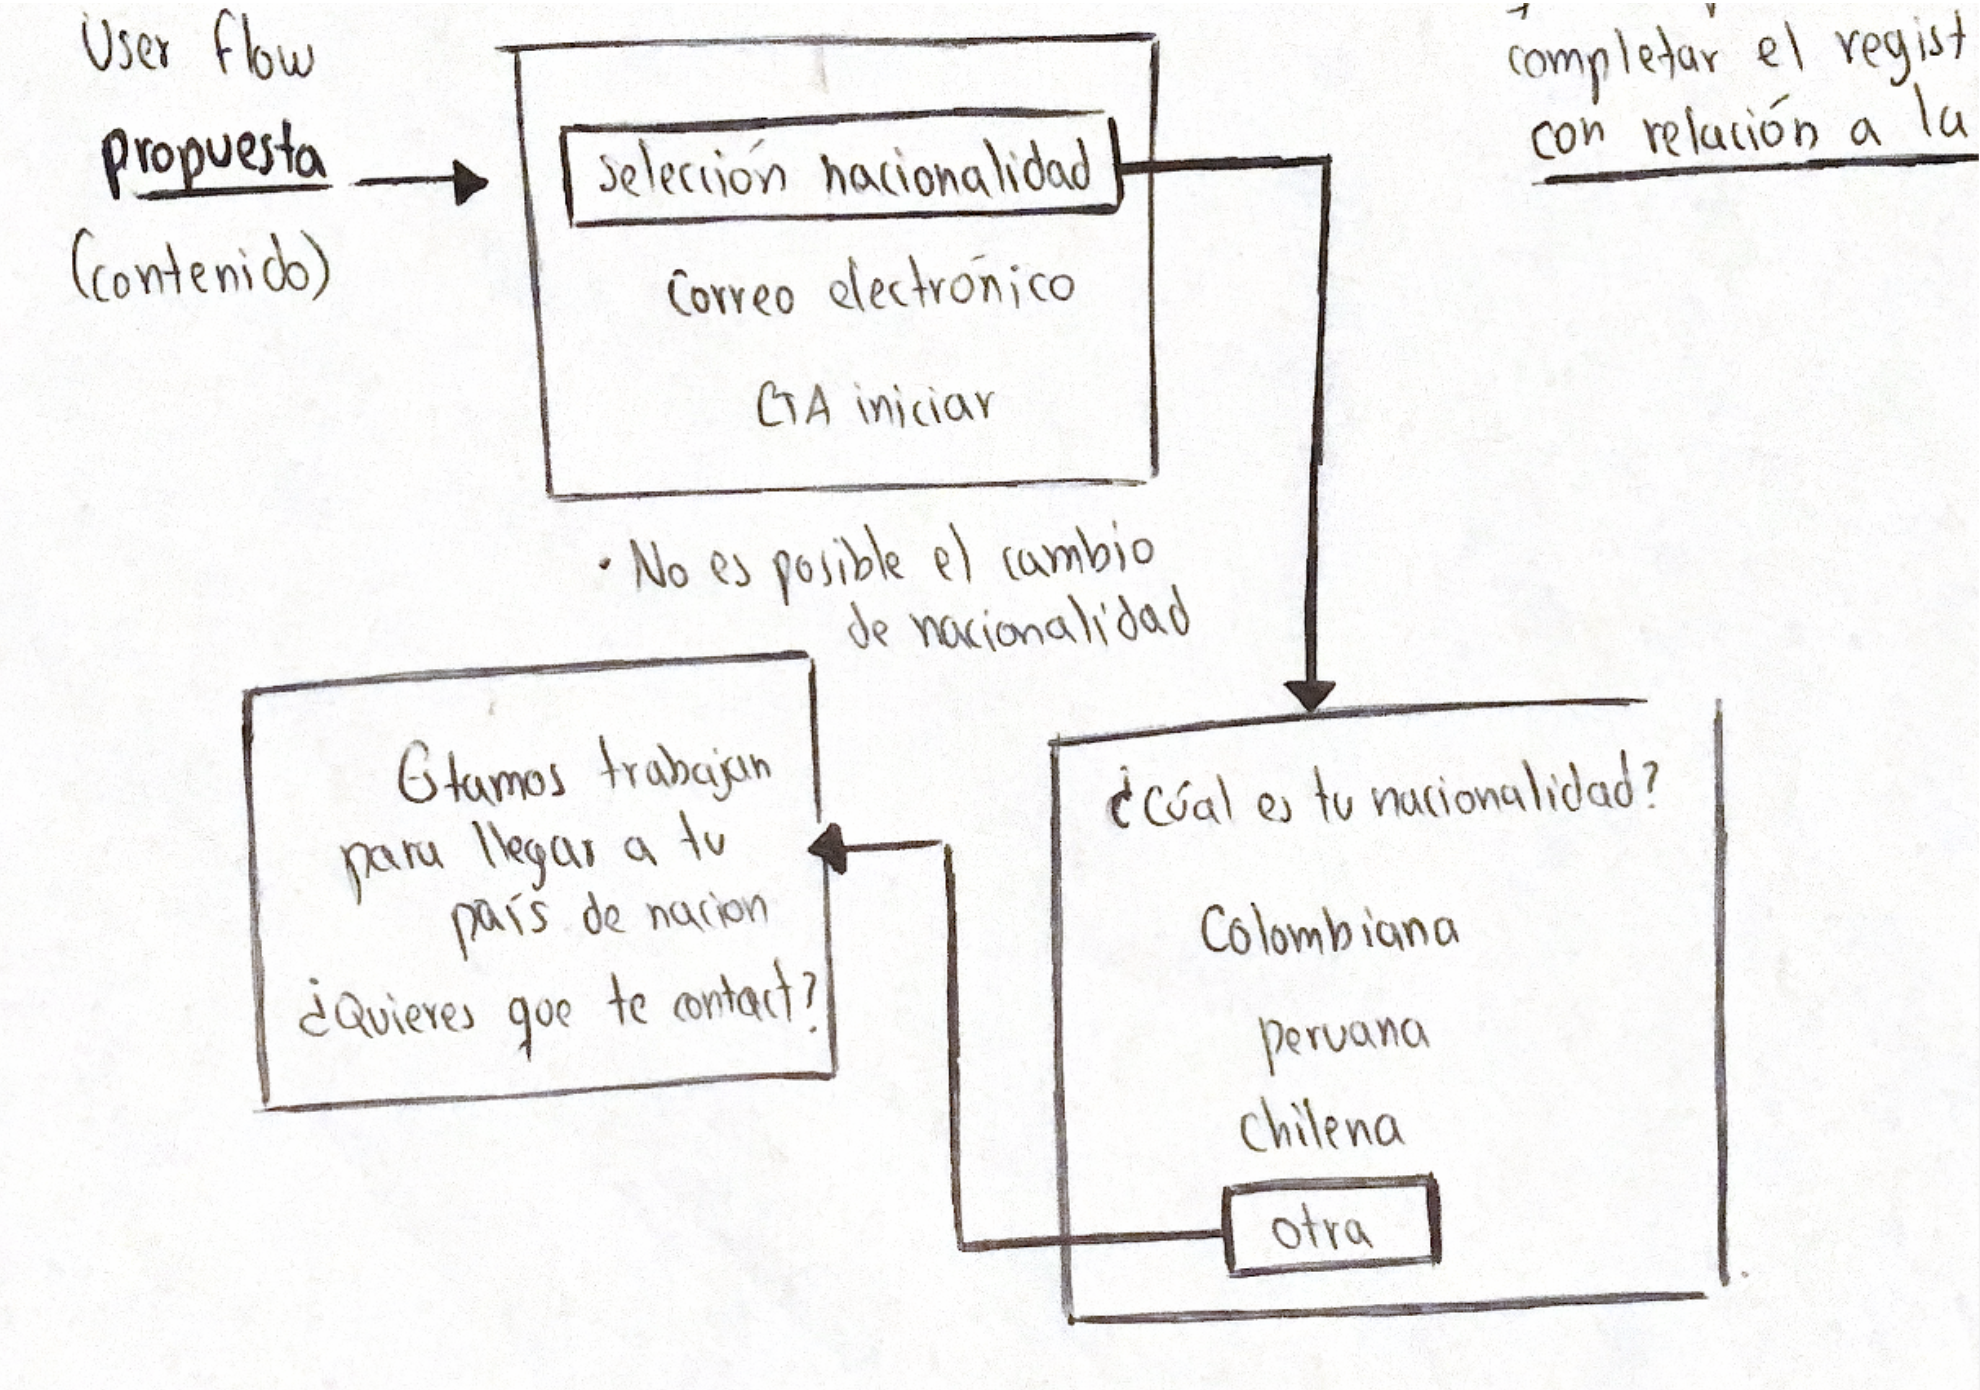 User flow
propuesta
(contenido)
selección nacionalidad
Correo electrónico
CTA iniciar
• No es posible el cambio
de nacionalidad
completar el regist
con relación a la
¿Cúal es tu nacionalidad?
Colombiana
peruana
chilena
otra
Estamos trabajan
para llegar a tu
país de nacion
¿Quieres que te contact?